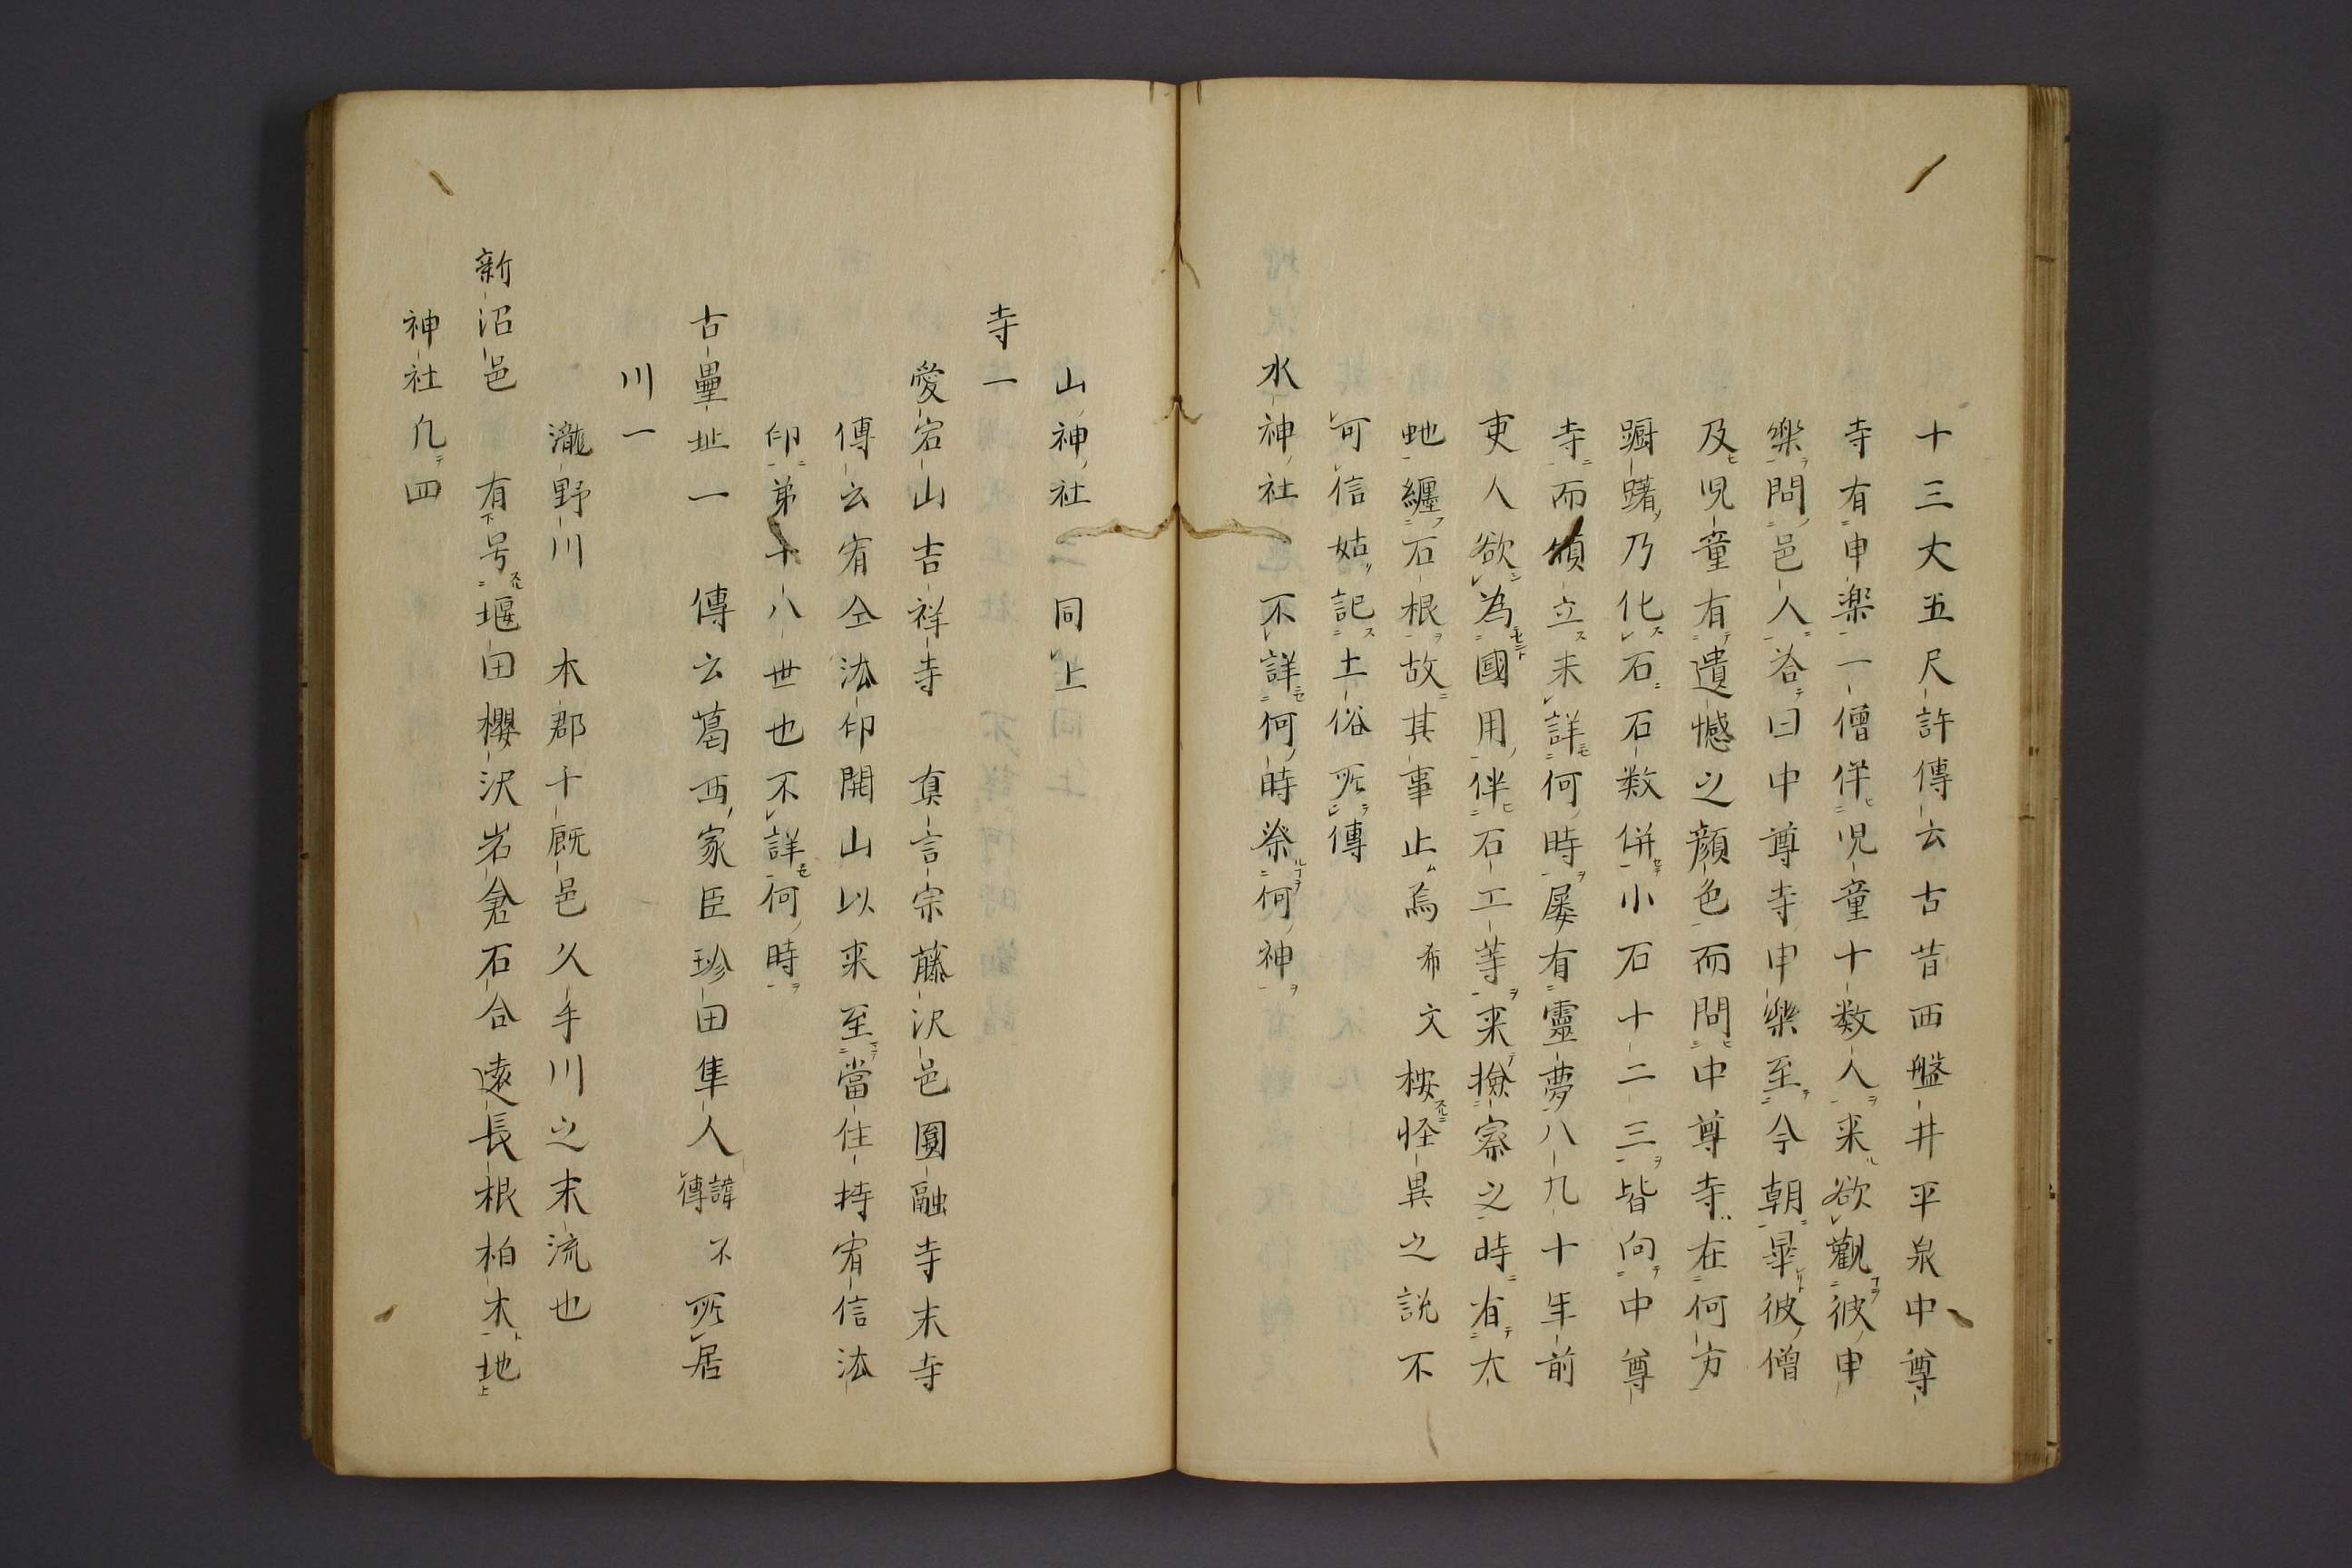 十三丈五尺許傳云古昔西盤井平泉中尊
寺有申楽一僧伴児童十数人来欲觀彼申
樂問邑人答曰中尊寺申樂至今朝畢彼僧
及児童有遺憾之顔色而問中尊寺在何方
踟躇乃化石石数併小石十二三皆向中尊
寺而傾立未詳何時屡有靈夢八九十年前
吏人欲為國用伴石工等来撿察之時有大
虵纏石根故其事止焉布文桉怪異之説不
可信姑記土俗所傳
水神社 不詳何時祭何神
山神社二同上
寺一
愛宕山吉祥寺 真言宗藤沢邑圓融寺末寺
傳云宥全法印開山以来至當住持宥信法
印第十八世也不詳何時
古壘址一 傳云葛西家臣珍田隼人諱不傳所居
川一
瀧野川 本郡千厩邑久手川之末流也
新沼邑 有号堰田櫻沢岩倉石合遠長根柏木地
神社凡四